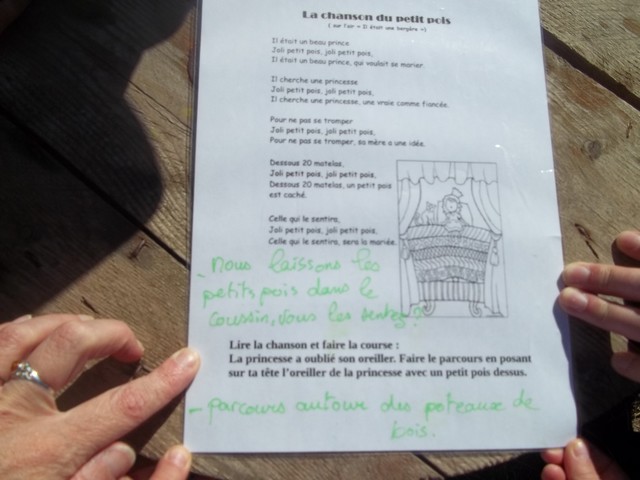 La chanson du petit pois
( sur l'air « Il était une bergère »)
Il était un beau prince
Joli petit pois, joli petit pois,
Il était un beau prince, qui voulait se marier.
Il cherche une princesse
Joli petit pois, joli petit pois,
Il cherche une princesse, une vraie comme fiancée.
Pour ne pas se tromper
Joli petit pois, joli petit pois,
Pour ne pas se tromper, sa mère a une idée.
Dessous 20 matelas,
Joli petit pois, joli petit pois,
Dessous 20 matelas, un petit pois
est caché.
Celui qui le sentira,
Joli petit pois, joli petit pois,
Celle qui le sentira, sera la mariée.
- nous laissons les
petits pois dans le
coussin, vous les sentez ?
Lire la chanson et faire la course :
La princesse a oublié son oreiller. Faire le parcours en posant
sur ta tête l'oreiller de la princesse avec un petit pois dessus.
- parcours autour des poteaux de
bois.